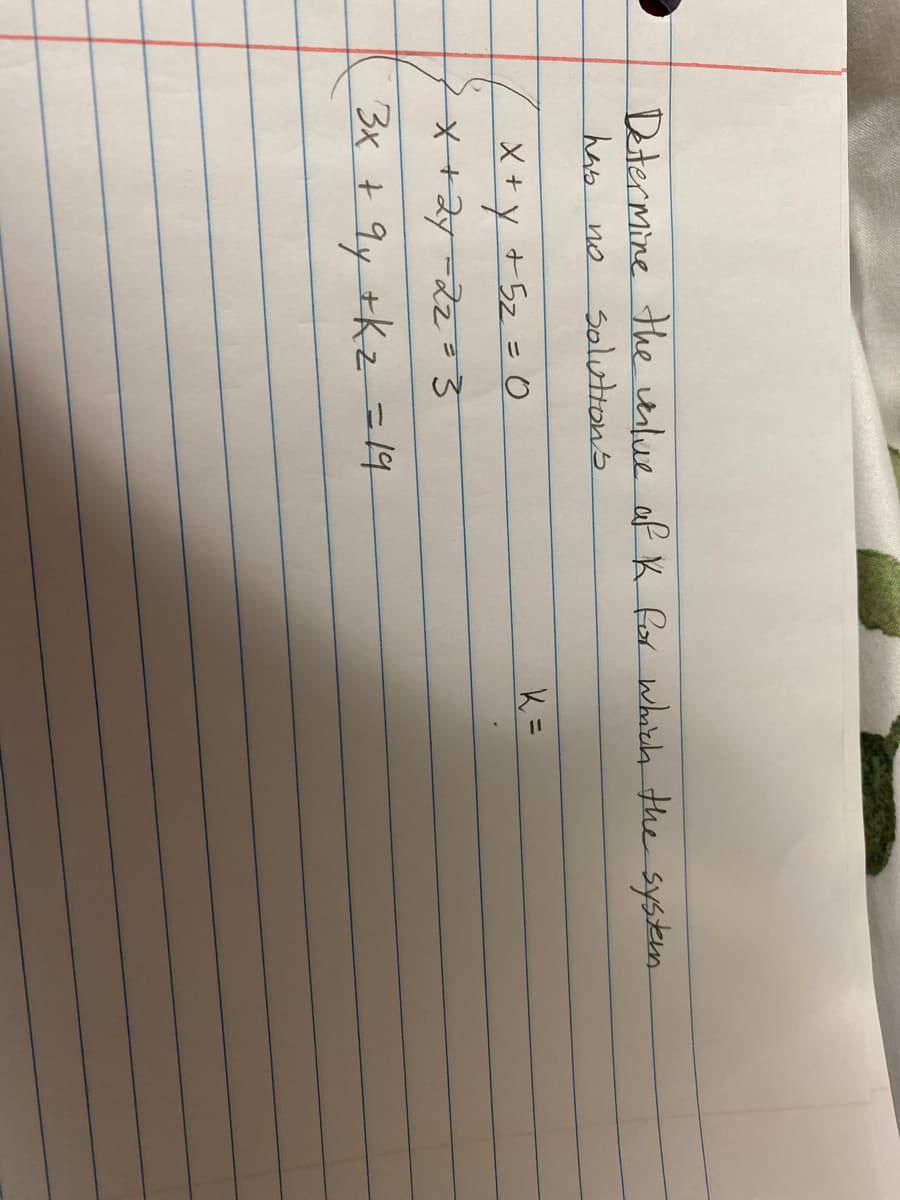 Determine the value of K for which the system
has no solutions
x + y + 5z = 0
K =
x + 2y - 2z = 3
3x + 9y + Kz = 19